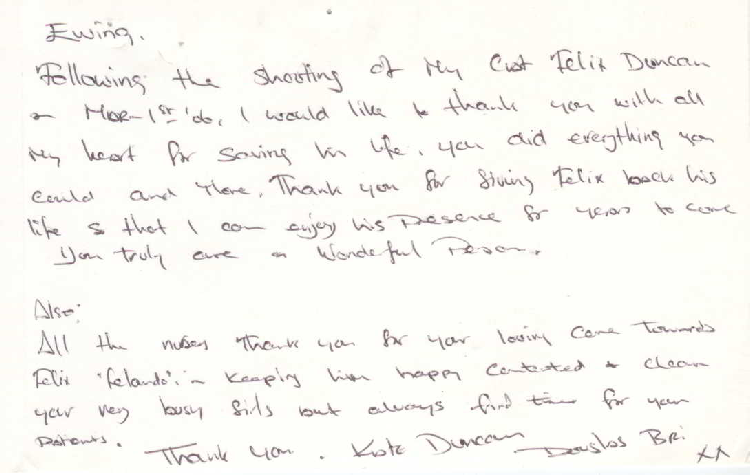 Ewing.
Following the shooting of My Cat Felix Duncan
on Mar-1st '06, I would like to thank you with all
My heart for Saving his life, you did everything you
could and More, Thank you for Giving Felix back his
life so that I can enjoy his Presence for years to come
You truly are a Wonderful Person.
Also:
All the nurses Thank you for your loving Care Towards
Felix 'felando' in keeping him happy Contented + Clean
your very busy Girls but always find time for your
Patients. Thank You. Kate Duncan Douglas XX